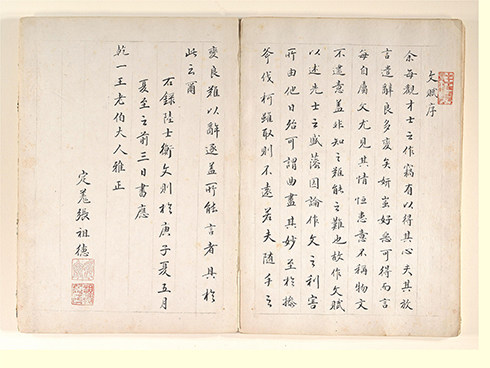 文賦序
余每觀才士之作竊有以得其心夫其放
言遣辭良多變矣妍蚩好惡可得而言
每自屬文尤見其情恒患意不稱物文
不逮意蓋非知之難能之難也故作文賦
以述先士之盛藻因論作文之利害
所由他日殆可謂曲盡其妙至於操
斧伐柯雖取則不遠若夫隨手之
變良難以辭逐蓋所能言者具於
此云爾
右錄陸士衡文則於庚子夏五月
夏至之前三日書應
乾一王老伯大人雅正
定菴張祖德